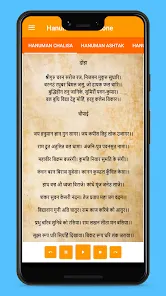 Hanu
one
HANUMAN CHALISA HANUMAN ASHTAK HANUM
दोहा
श्रीगुरु चरन सरोज रज, निजमनु मुकुरु सुधारि।
बरनउं रघुबर बिमल जसु, जो दायक फल चारि।।
बुद्धिहीन तनु जानिके, सुमिरौं पवन-कुमार।
बल बुधि विद्या देहु मोहिं, हरहु कलेस बिकार।।
चौपाई
जय हनुमान ज्ञान गुन सागर। जय कपीस तिहुं लोक उजागर।।
राम दूत अतुलित बल धामा। अंजनि-पुत्र पवनसुत नामा।।
महाबीर बिक्रम बजरंगी। कुमति निवार सुमति के संगी।।
कंचन बरन बिराज सुबेसा। कानन कुण्डल कुंचित केसा।।
हाथ बज्र औ ध्वजा बिराजे। कांधे मूंज जनेऊ साजे।।
शंकर सुवन केसरी नंदन। तेज प्रताप महा जग वंदन।।
विद्यावान गुनी अति चातुर। राम काज करिबे को आतुर।।
प्रभु चरित्र सुनिबे को रसिया। राम लखन सीता मन बसिया।।
सूक्ष्म रूप धरि सियहिं दिखावा। बिकट रूप धरि लंक जरावा।।